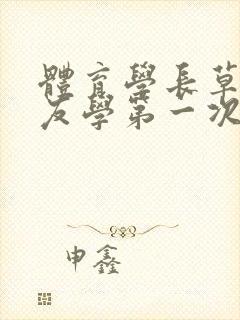 體育學長草
友學第一次
申鑫